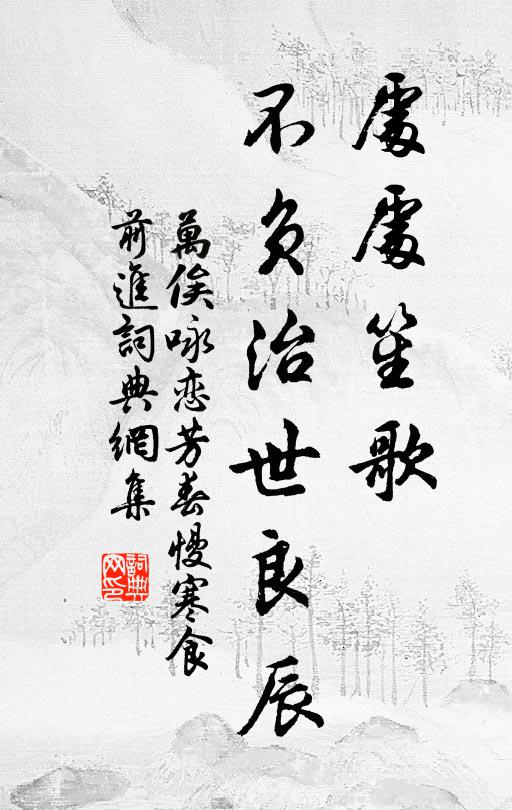 處處笙歌
不負治世良辰
萬俟咏恋芳春慢寒食
前進詞典網集
詞典网印